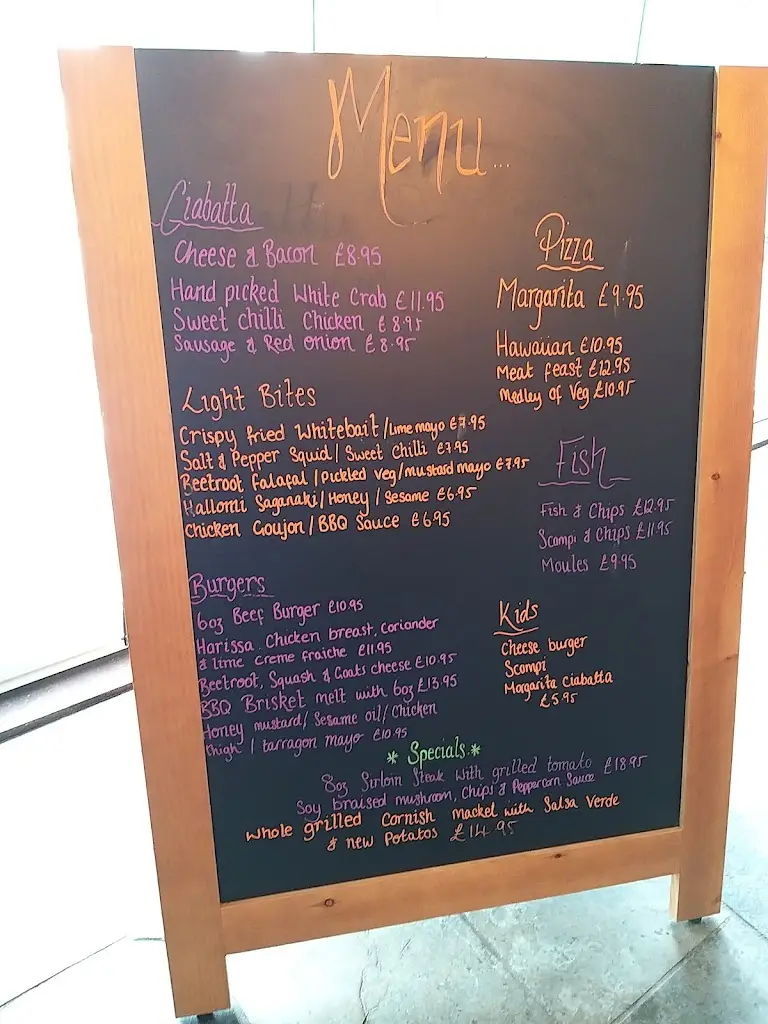 Menu...
Ciabatta
Cheese & Bacon £8.95
Hand picked White Crab £11.95
Sweet chilli Chicken £8.95
Sausage & Red onion £8.95
Light Bites
Crispy fried Whitebait/lime mayo £7.95
Salt & Pepper Squid/ Sweet Chilli £7.95
Beetroot Falafal/Pickled Veg/mustard mayo £7.95
Hallomi Saganaki/Honey/Sesame £6.95
Chicken Goujon/BBQ Sauce £6.95
Burgers
6oz Beef Burger £10.95
Harissa Chicken breast, coriander
& lime creme fraiche £11.95
Beetroot, Squash & Goats cheese £10.95
BBQ Brisket melt with 6oz £13.95
Honey mustard/ Sesame oil/ Chicken
thigh / tarragon mayo £10.95
Pizza
Margarita £9.95
Hawaiian £10.95
Meat feast £12.95
Medley of Veg £10.95
Fish
Fish & Chips £12.95
Scampi & Chips £11.95
Moules £9.95
Kids
Cheese burger
Scampi
Margarita ciabatta
£5.95
* Specials *
8oz Sirloin Steak with grilled tomato £18.95
Soy braised mushroom, Chips & Peppercorn Sauce
Whole grilled Cornish Mackel with Salsa Verde
& new Potatos £14.95